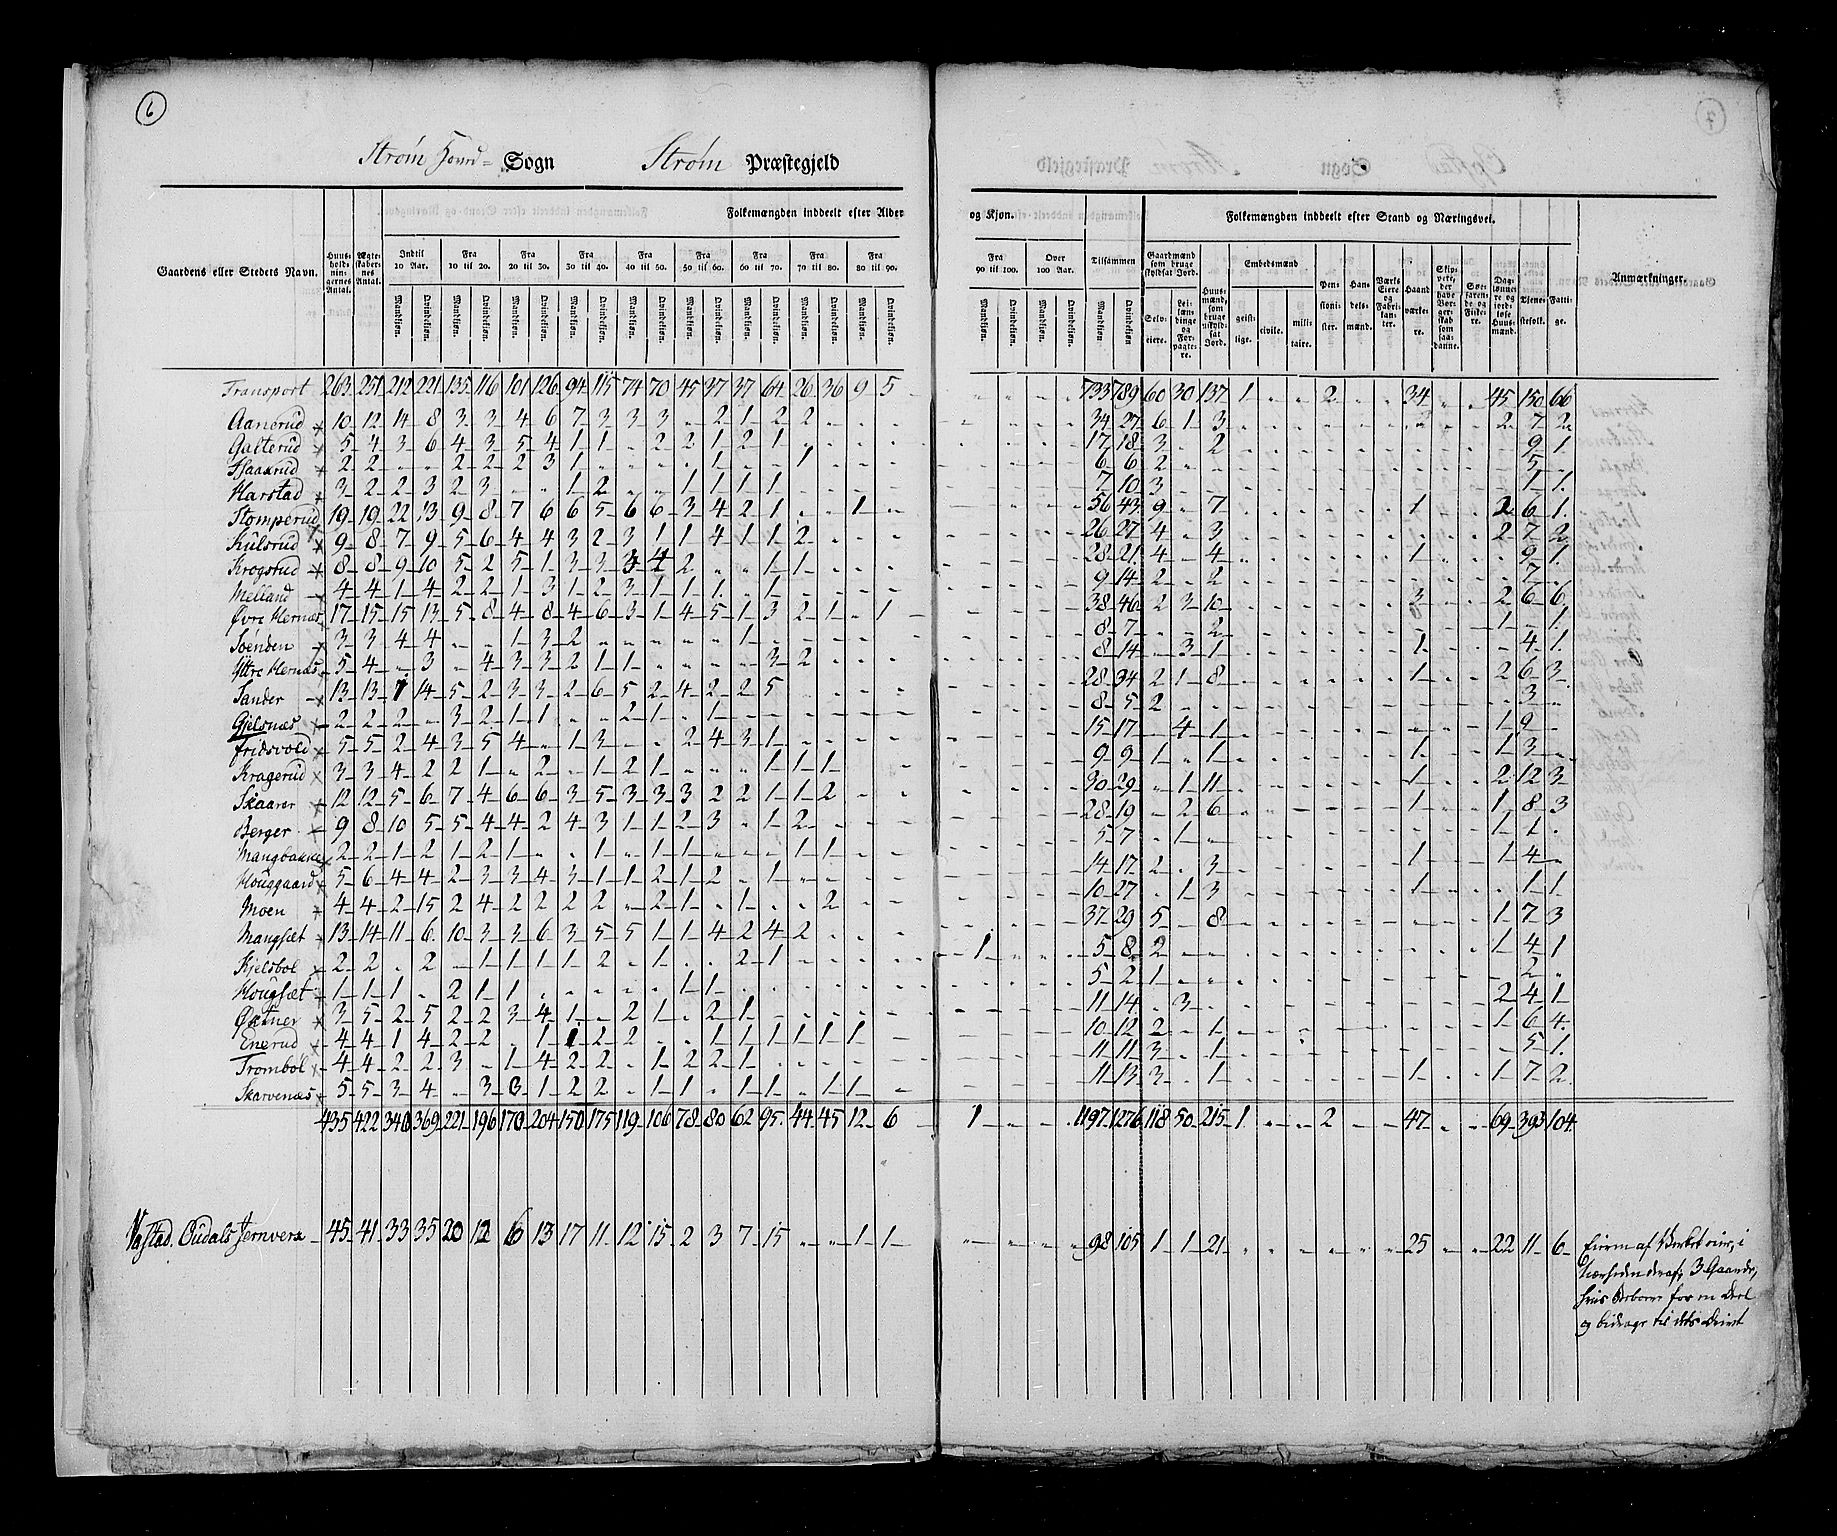 6
Strøm Hovd= Sogn Strøm Præstegjeld
Gaardens eller Stedets Navn. Huusholdningernes Antal. Ægteskabernes Antal. Folkemængden inddeelt efter Alder og Kjøn. Tilsammen Folkemængden inddeelt efter Stand og Næringsvei. Anmærkninger.
Indtil 10 Aar. Fra 10 til 20. Fra 20 til 30. Fra 30 til 40. Fra 40 til 50. Fra 50 til 60. Fra 60 til 70. Fra 70 til 80. Fra 80 til 90. Fra 90 til 100. Over 100 Aar.
Mandkjøn. Qvindekjøn.
Gaardmænd som bruge skyldsat Jord. Selveiere. Leilændinge og Forpagtere. Huusmænd, som bruge uskyldsat Jord. Embedsmænd geistlige. civile. militaire. Pensionister. Handelsmænd. Værkseiere og Fabrikanter. Haandværkere. Søefarende og Fiskere. Daglønnere og jordløse Huusmænd. Tjenestefolk. Fattige.
Transport 263 251 212 221 135 116 101 126 94 115 74 70 45 37 37 64 26 36 9 5 733 789 60 30 137 1 2 34 45 150 66
Aanerud 10 12 14 8 3 3 4 6 7 3 3 3 2 1 2 2 34 27 6 1 3 2 7 2
Galterud 5 4 3 6 4 3 5 4 1 1 2 2 1 2 1 17 18 3 2 9 1
Haaxrud 2 2 2 2 2 3 1 1 1 6 6 2 5
Harstad 3 2 2 3 2 3 1 2 1 1 1 1 7 10 3 1 1
Stomperud 19 19 22 13 9 8 7 6 6 5 6 6 3 4 2 1 1 56 43 9 7 1 2 6 1
Kulsrud 9 8 7 9 5 6 4 4 3 2 3 1 1 4 1 1 2 26 27 4 3 2 7 2
Krogstud 8 8 9 10 5 2 5 1 3 3 3 4 2 1 1 28 21 4 4 1 9 1
Melland 4 4 1 4 2 2 1 3 1 2 3 1 1 1 1 9 14 2 2 7
Øvre Hernæs 17 15 15 13 5 8 4 8 4 6 3 1 4 5 1 3 2 1 1 38 46 2 3 10 3 2 6 6
Soenden 3 3 4 4 1 3 2 1 8 7 2 1 1
Ÿttre Hernæs 5 4 3 4 3 3 2 1 1 3 2 8 14 3 1 1 4 1
Sander 13 13 7 14 5 2 3 3 2 6 5 2 4 2 2 5 28 34 2 1 8 1 2 6 3
Gjelsnæs 2 2 2 3 2 1 1 2 1 1 8 5 2 3
Fridsvold 5 5 2 4 3 5 4 1 3 2 4 3 1 15 17 4 1 1 9
Kragerud 3 3 4 2 2 1 2 1 2 1 1 1 1 9 9 1 1 1 1 3
Skaarer 12 12 5 6 7 4 6 6 3 5 3 3 3 2 2 1 1 2 30 29 1 11 1 2 12 3
Berger 9 8 10 5 5 4 4 2 4 3 1 1 2 3 1 2 28 19 2 6 1 1 8 3
Mangbakne 2 2 1 2 1 2 1 1 1 1 1 1 5 7 1 1 1
Houggaard 5 6 4 4 2 3 3 4 3 1 1 2 1 2 1 14 17 2 3 1 1 4
Moen 4 4 2 15 2 4 2 2 2 2 2 1 1 2 10 27 1 3 1 1 1
Mangsæt 13 14 11 6 10 3 3 6 3 5 5 1 1 4 2 4 2 37 29 5 8 1 7 3
Kjelsbol 2 2 2 1 1 1 1 2 1 2 1 1 5 8 2 1 4 1
Hougsæt 1 1 1 2 1 1 1 1 5 2 1 2
Øxtner 3 5 2 5 2 2 3 4 1 2 1 2 1 11 14 3 2 4 1
Enerud 4 4 1 4 2 2 1 1 2 2 1 1 1 1 1 1 10 12 2 1 1 6 4
Trombøl 4 4 2 2 3 1 4 2 2 1 2 2 1 11 11 3 1 5 1
Skarvenæs 5 5 3 4 3 3 1 2 2 1 1 1 1 1 1 11 13 3 1 1 1 7 2
435 422 340 369 221 196 170 204 150 175 119 106 78 80 62 95 44 45 12 6 1 1197 1276 118 50 215 1 2 47 69 393 104
Oudals Jernverk 45 41 33 35 20 12 6 13 17 11 12 15 2 3 7 15 1 1 98 105 1 1 21 25 22 11 6
Eieren af Verket eier, i
Nærheden deraf, 3 Gaarde,
for en Deel
og bidrage til dets Drivt